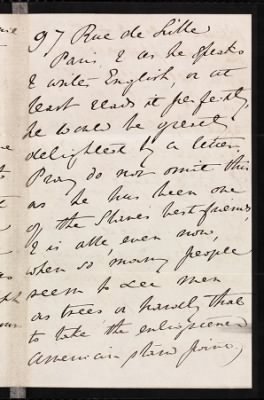 97 Rue de Lille
Paris, & as he speaks
& writes English, or at
least reads it perfectly,
he would be greatly
delighted by a letter.
Pray do not omit this
as he has been one
of the Slaves best friends,
& is able, even now,
when so many people
seem to see men
as trees or hardly that
to take the enlightened
American stand point,